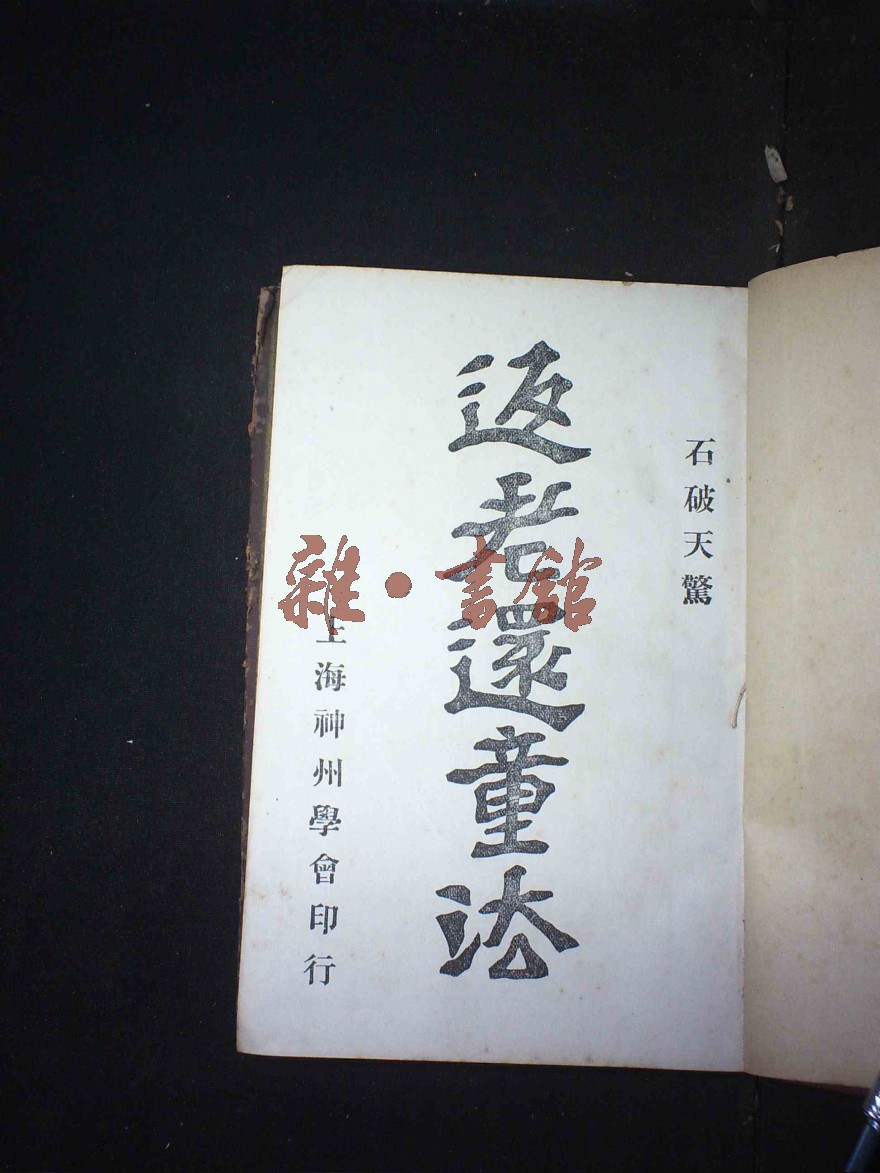 石破天驚
返老還童法
上海神州學會印行
雜·書舘